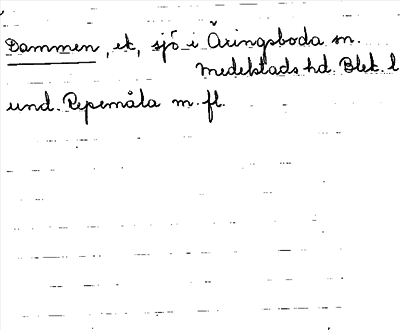 Dammen, ek, sjö i Äringsboda sn.
Medelstads hd. Blek. l
und. Repemåla m. fl.